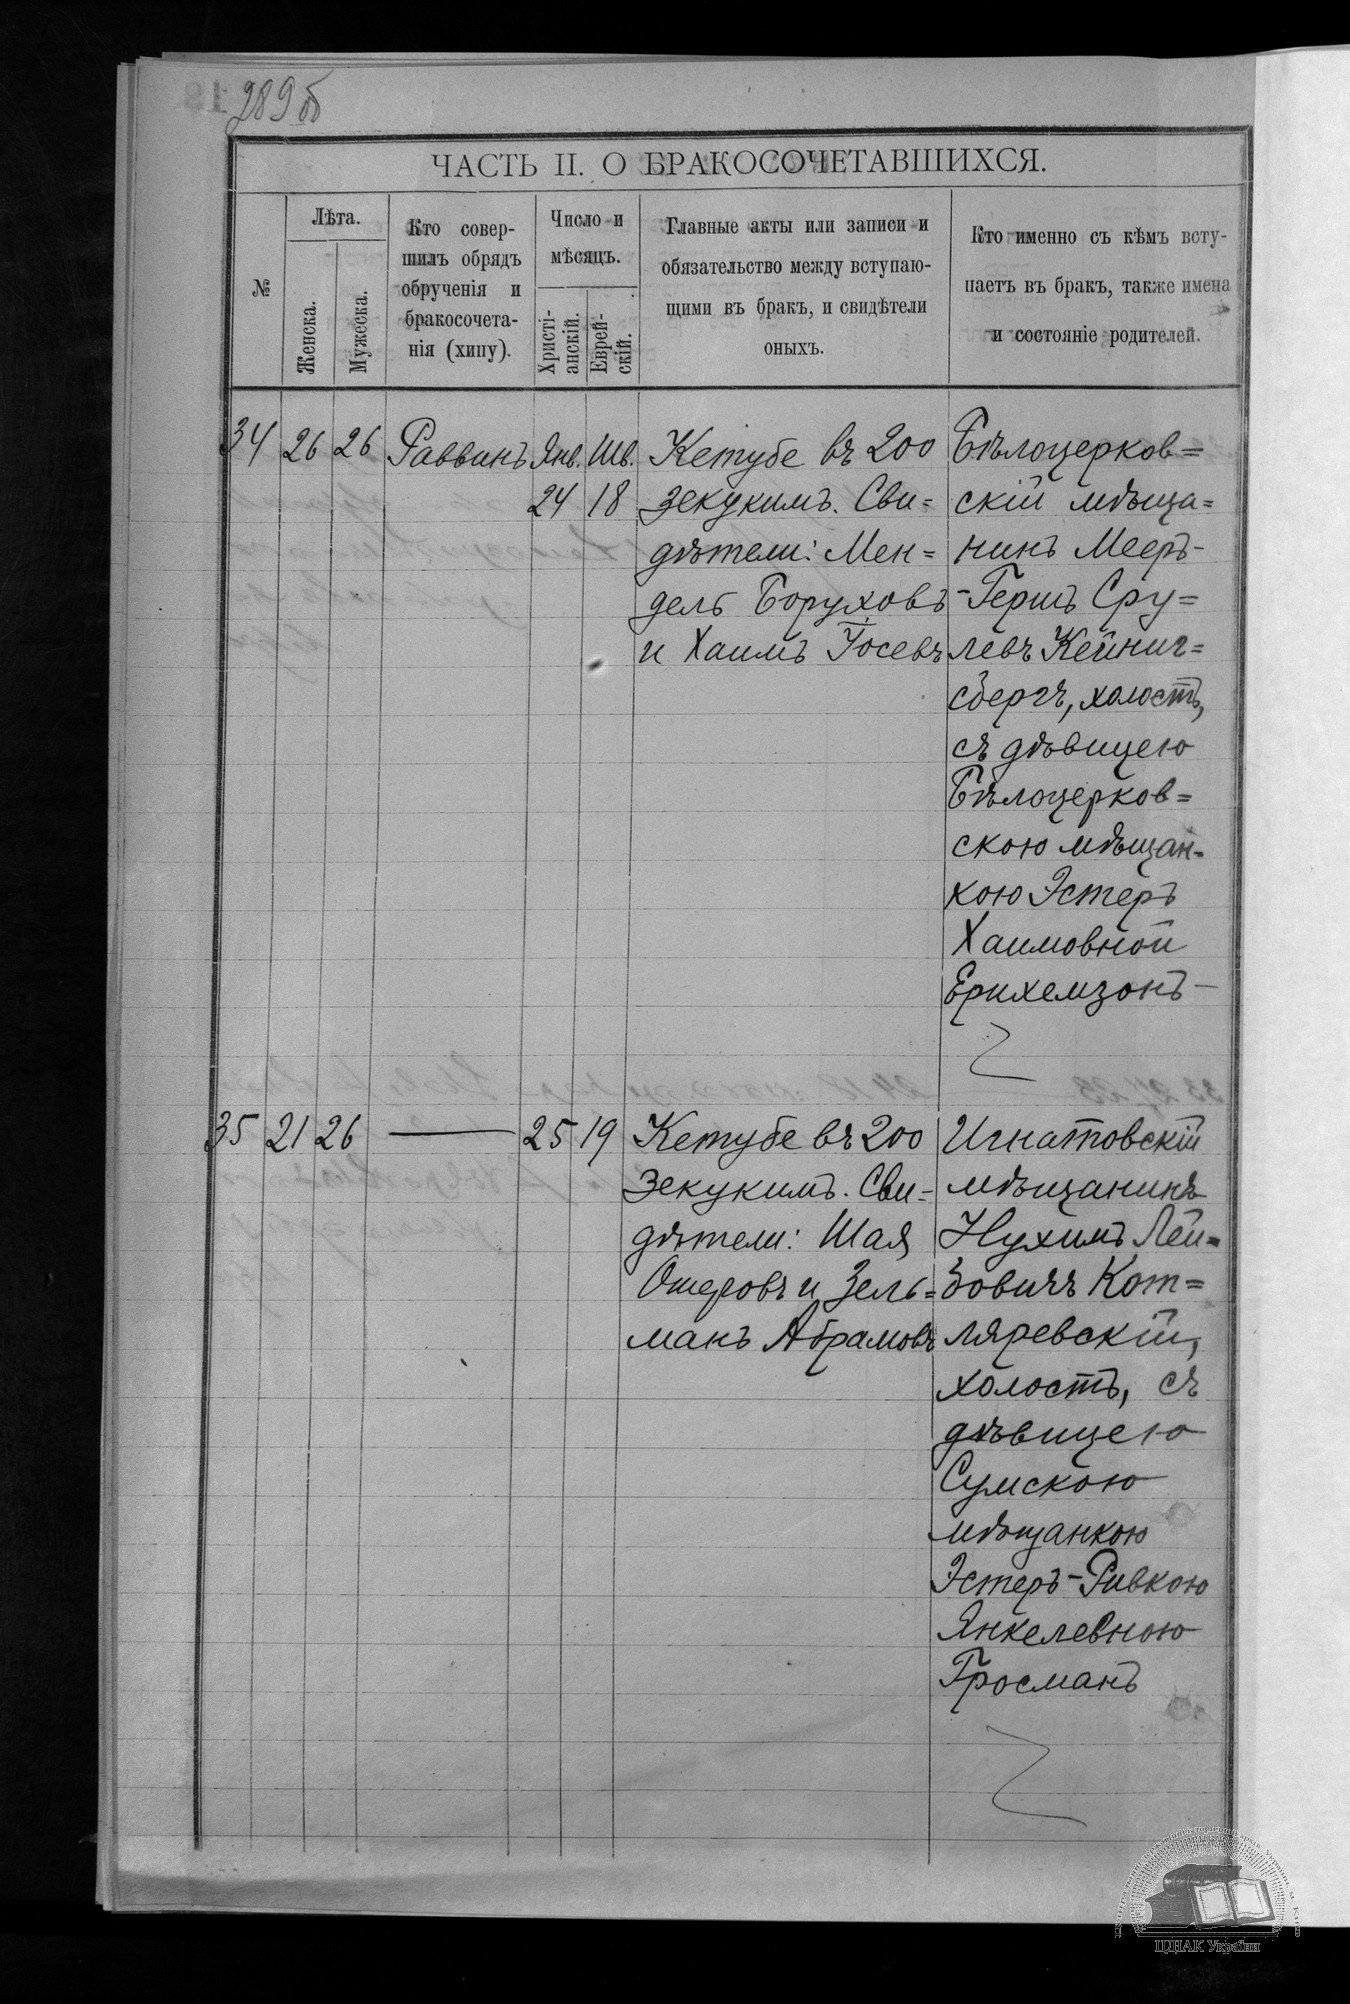 289 об
ЧАСТЬ II. О БРАКОСОЧЕТАВШИХСЯ.
№
Лѣта.
Женска.
Мужеска.
Кто совер-
шилъ обрядъ
обрученія и
бракосочета-
нія (хипу).
Число и
мѣсяцъ.
Христі-
анскій.
Еврей-
скій.
Главные акты или записи и
обязательство между вступаю-
щими въ бракъ, и свидѣтели
оныхъ.
Кто именно съ кѣмъ всту-
паетъ въ бракъ, также имена
и состояніе родителей.
34 26 26 Раввинъ Янв. Шв.
24 18
Кетубе въ 200
зекукимъ. Сви=
дѣтели: Мен=
дель Боруховъ
и Хаимъ Іосевъ
Бѣлоцерков=
скій мѣща=
нинъ Мееръ-
-Гершъ Сру=
левъ Кейниг=
сбергъ, холостъ,
съ дѣвицею
Бѣлоцерков=
скою мѣщан-
кою Эстеръ
Хаимовной
Ерихемзонъ
35 21 26 — 25 19
Кетубе въ 200
Зекукимъ. Сви-
дѣтели: Шая
Ошеровъ и Зель=
манъ Абрамовъ
Игнатовскій
мѣщанинъ
Нухимъ Лей=
бовичъ Кот=
ляревскій,
холостъ, съ
дѣвицею
Сумскою
мѣщанкою
Эстеръ-Ривкою
Янкелевною
Гросманъ
ЦДІАК України